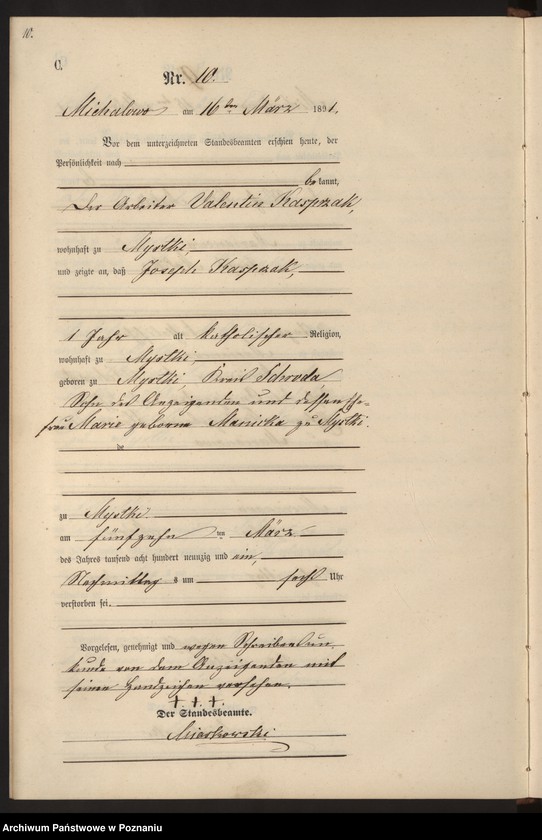 10.
C.
Nr. 10.
Michalowo am 16ten März 1891.
Vor dem unterzeichneten Standesbeamten erschien heute, der
Persönlichkeit nach
bekannt,
Der Arbeiter Valentin Kasprzak,
wohnhaft zu Mystki,
und zeigte an, daß Joseph Kasprzak,
1 Jahr alt katholischer Religion,
wohnhaft zu Mystki
geboren zu Mystki, Kreis Schroda
Sohn des Anzeigenden und dessen Ehe-
frau Marie geborne Manicka zu Mystki.
de
zu Mystki
am fünfzehn ten März
des Jahres tausend acht hundert neunzig und ein,
Nachmittag s um sechs Uhr
verstorben sei.
Vorgelesen, genehmigt und wegen Schreibensun-
kunde von dem Anzeigenden mit
seinen Handzeichen versehen.
† † †
Der Standesbeamte.
Mierkowski
Archiwum Państwowe w Poznaniu